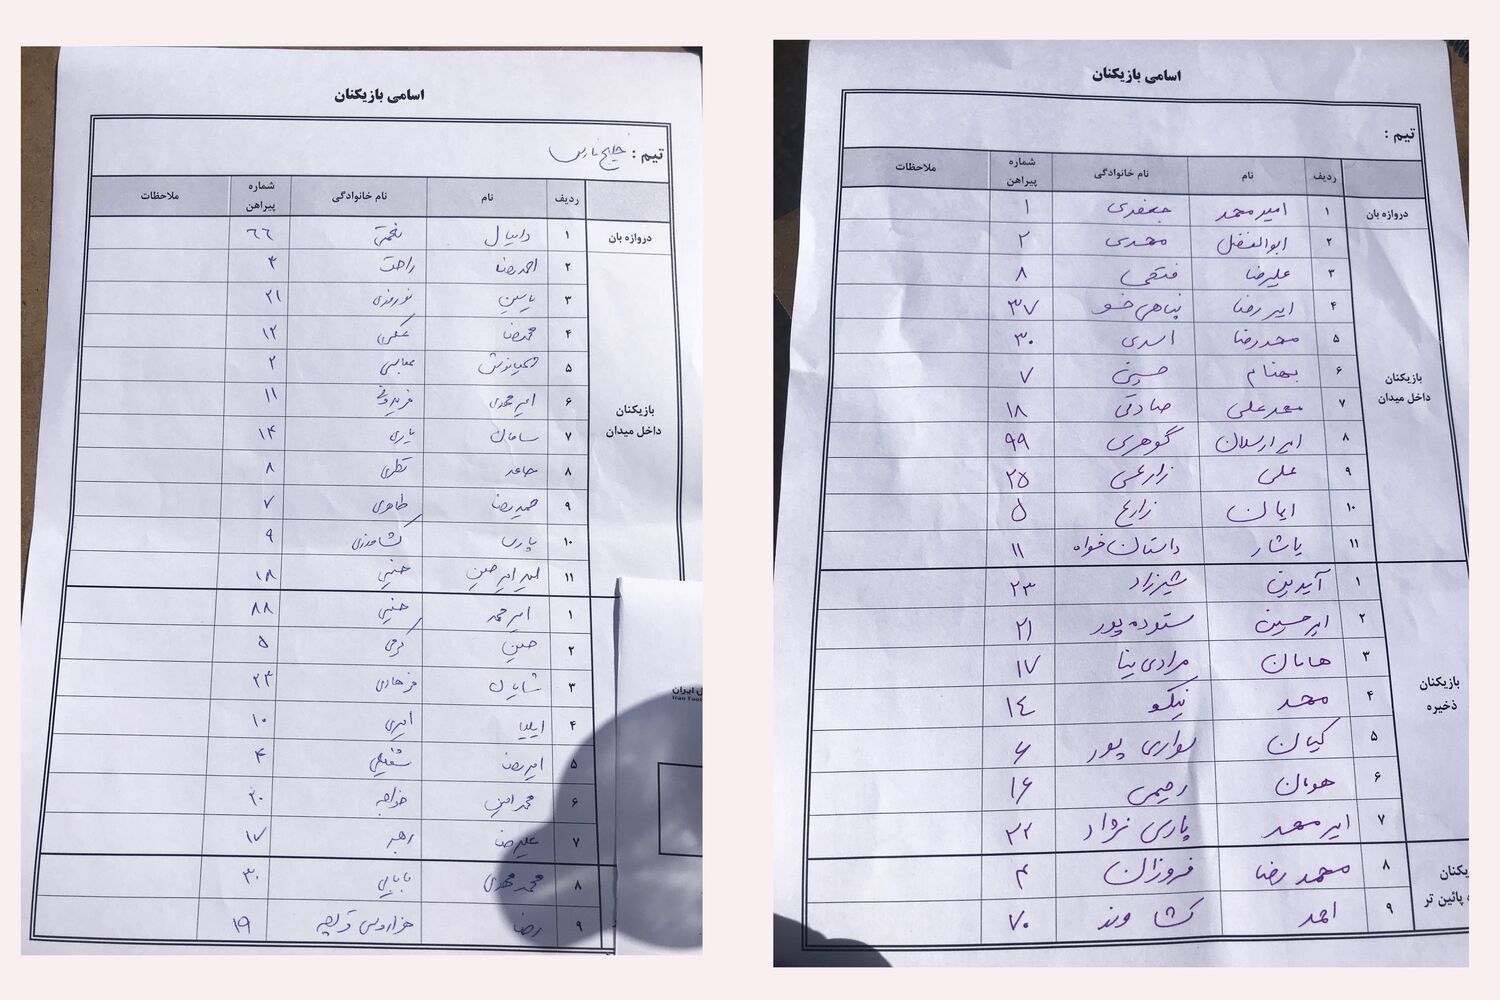 اسامی بازیکنان
تیم : خلیج فارس
ردیف نام نام خانوادگی شماره پیراهن ملاحظات
دروازه بان
۱ دانیال نعمتی ٦٦
بازیکنان داخل میدان
۲ احمدرضا راحت ۳
۳ یاسین نوروزی ۲۱
۴ محمدرضا عسکری ۱۲
۵ عباسی ۲
۶ امیرمهدی فریدونی ۱۱
۷ سامان یاری ۱۴
۸ حامد ۸
۹ حمیدرضا طاهری ۷
۱۰ پارسا کشاورزی ۹
۱۱ امیرحسین حسنی ۱۸
۱ امیرمحمد حسنی ۸۸
۲ حسین کرمی ۵
۳ شایان فرهادی ۲۳
۴ ایلیا امیری ۱۰
۵ امیررضا شفیعی ۴
۶ محمدامین خواجه ۲۰
۷ علیرضا ۱۷
۸ محمدمهدی بابایی ۳۰
۹ رضا ۱۹
اسامی بازیکنان
تیم :
ردیف نام نام خانوادگی شماره پیراهن ملاحظات
دروازه بان
۱ امیرمحمد جعفری ۱
بازیکنان داخل میدان
۲ ابوالفضل مهدی ۲
۳ علیرضا فتحی ۸
۴ امیررضا پناهی خو ۳۷
۵ محمدرضا اسدی ۳۰
۶ بهنام حسینی ۷
۷ محمدعلی صادقی ۱۸
۸ امیرارسلان گوهری ۹۹
۹ علی زارعی ۲۵
۱۰ ایمان زارع ۵
۱۱ یاشار داستان خواه ۱۱
بازیکنان ذخیره
۱ آیدین شیرزاد ۲۳
۲ امیرحسین ستوده پور ۲۱
۳ هامان مرادی نیا ۱۷
۴ محمد نیکو ۱٤
۵ کیان سواری پور ۶
۶ هومان رحیمی ۱۶
۷ امیرمحمد پارسی نژاد ۲۲
۸ محمدرضا فروزان ۴
۹ احمد کشاوند ۷۰